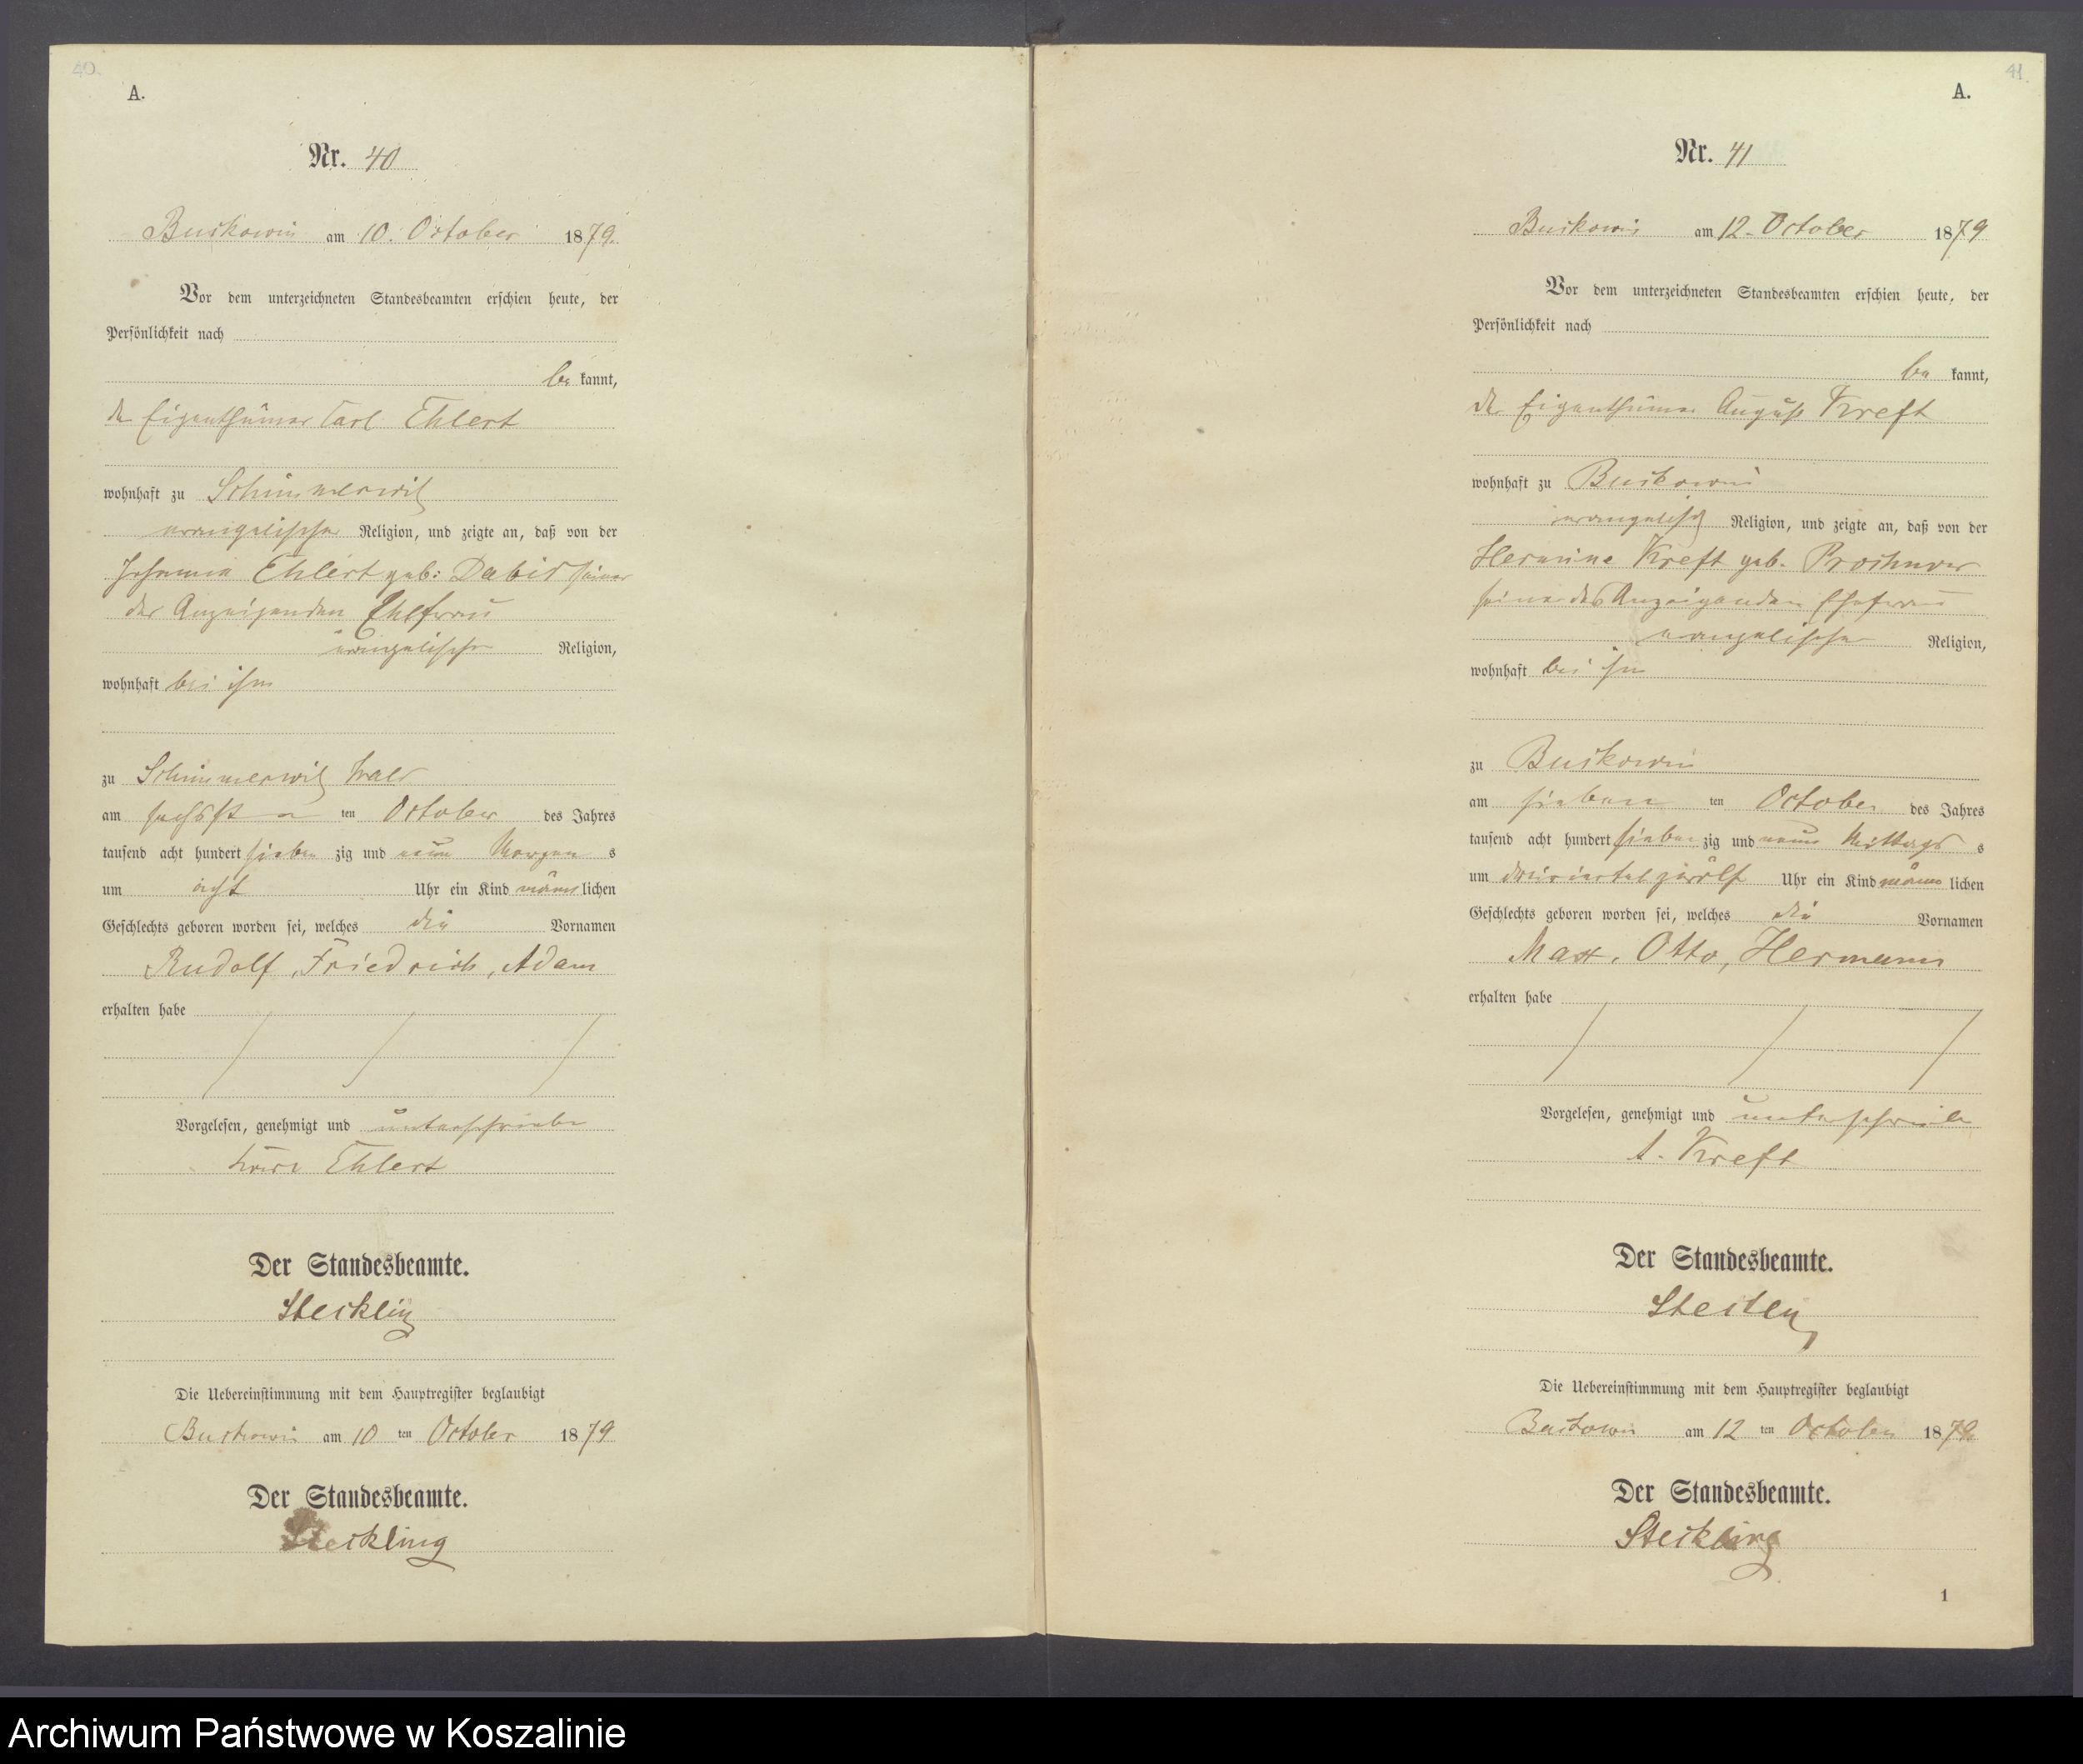 40.
A.
Nr. 40
Buckowin am 10. October 1879.
Vor dem unterzeichneten Standesbeamten erschien heute, der
Persönlichkeit nach
be kannt,
der Eigenthümer Carl Ehlert
wohnhaft zu Schimmerwitz
evangelischer Religion, und zeigte an, daß von der
Ehlert geb: seiner
des Anzeigenden Ehefrau
evangelischer Religion,
wohnhaft bei ihm
zu Schimmerwitz Wald
am sechsten ten October des Jahres
tausend acht hundert sieben zig und neun Morgen s
um acht Uhr ein Kind männ lichen
Geschlechts geboren worden sei, welches die Vornamen
Rudolf, Friedrich, Adam
erhalten habe
Vorgelesen, genehmigt und unterschrieben
Ehlert
Der Standesbeamte.
Steckling
Die Uebereinstimmung mit dem Hauptregister beglaubigt
Buckowin am 10 ten October 1879
Der Standesbeamte.
Steckling
41.
A.
Nr. 41
Buckowin am 12. October 1879
Vor dem unterzeichneten Standesbeamten erschien heute, der
Persönlichkeit nach
be kannt,
der Eigenthümer August Kreft
wohnhaft zu Buckowin
evangelisch Religion, und zeigte an, daß von der
Hermine Kreft geb.
seiner des Anzeigenden Ehefrau
evangelischer Religion,
wohnhaft bei ihm
zu Buckowin
am sieben ten October des Jahres
tausend acht hundert sieben zig und neun Mittags s
um dreiviertel zwölf Uhr ein Kind männ lichen
Geschlechts geboren worden sei, welches die Vornamen
Max, Otto, Hermann
erhalten habe
Vorgelesen, genehmigt und unterschrieben
A. Kreft
Der Standesbeamte.
Steckling
Die Uebereinstimmung mit dem Hauptregister beglaubigt
Buckowin am 12 ten October 1879
Der Standesbeamte.
Steckling
1
Archiwum Państwowe w Koszalinie